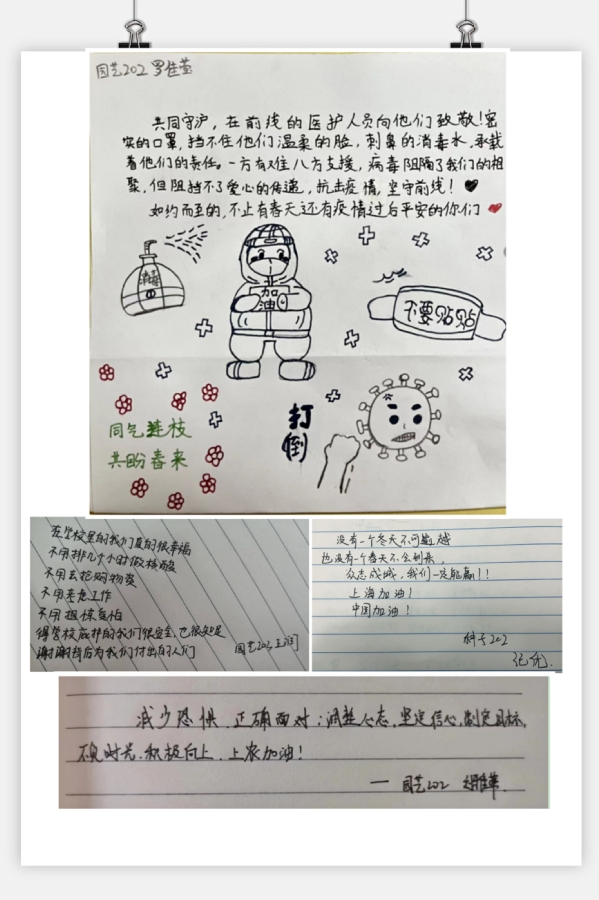 园艺202 罗佳莹
共同守沪，在前线的医护人员向他们致敬！密
实的口罩，挡不住他们温柔的脸，刺鼻的消毒水，承载
着他们的责任。一方有难八方支援，病毒阻隔了我们的相
聚，但阻挡不了爱心的传递，抗击疫情，坚守前线！
如约而至的，不止有春天还有疫情过后平安的你们
消毒
加油
不要贴贴
打倒
同气连枝
共盼春来
在学校里的我们真的很幸福
不用排几个小时做核酸
不用去抢购物资
不用考虑工作
不用担惊受怕
得学校庇护的我们很安全，也很知足
谢谢背后为我们付出的人们
园艺202
没有一个冬天不可逾越
也没有一个春天不会到来，
众志成城，我们一定能赢！！
上海加油！
中国加油！
202
减少恐惧，正确面对；调整心态，坚定信心，制定目标，
不负时光，积极向上，上农加油！
— 园艺202